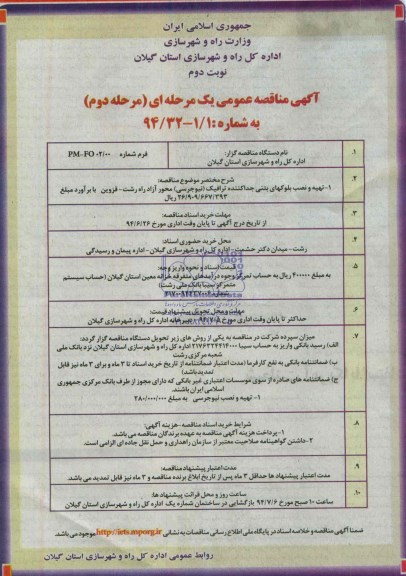 جمهوری اسلامی ایران
وزارت راه و شهرسازی
اداره کل راه و شهرسازی استان گیلان
نوبت دوم
آگهی مناقصه عمومی یک مرحله ای (مرحله دوم)
به شماره: ۹۴/۳۲-۱/۱
۱. نام دستگاه مناقصه گزار: فرم شماره PM-FO ۰۲/۰۰
اداره کل راه و شهرسازی استان گیلان
۲. شرح مختصر موضوع مناقصه:
۱-تهیه و نصب بلوکهای بتنی جداکننده ترافیک (نیوجرسی) محور آزاد راه رشت- قزوین با برآورد مبلغ
۲۶/۹۰۹/۶۶۷/۳۹۳ ریال
۳. مهلت خرید اسناد مناقصه:
از تاریخ درج آگهی تا پایان وقت اداری مورخ ۹۴/۶/۲۶
۴. محل خرید حضوری اسناد:
رشت- میدان دکتر حشمت- اداره کل راه و شهرسازی گیلان- اداره پیمان و رسیدگی
۵. قیمت اسناد و نحوه واریز وجه:
به مبلغ ۴۰۰۰۰۰ ریال به حساب تمرکز وجوه درآمدهای متفرقه خزانه معین استان گیلان (حساب سیستم
متمرکز سیبا بانک ملی رشت)
۶. مهلت و محل تحویل پیشنهاد قیمت:
حداکثر تا پایان وقت اداری مورخ دبیرخانه اداره کل راه و شهرسازی گیلان
۷. میزان سپرده شرکت در مناقصه به یکی از روش های زیر تحویل دستگاه مناقصه گزار گردد:
الف) رسید بانکی واریز به حساب سیبا ۲۱۷۶۲۲۴۴۱۴۰۰۰ اداره کل راه و شهرسازی استان گیلان نزد بانک ملی
شعبه مرکزی رشت
ب) ضمانتنامه بانکی به نفع کارفرما (مدت اعتبار ضمانتنامه از تاریخ خرید اسناد تا ۳ ماه و برای ۳ ماه نیز قابل
تمدید باشد)
ج) ضمانتنامه های صادره از سوی موسسات اعتباری غیر بانکی که دارای مجوز از طرف بانک مرکزی جمهوری
اسلامی ایران باشند.
۱- تهیه و نصب نیوجرسی به مبلغ ۲۸۰/۰۰۰/۰۰۰
۸. شرایط خرید اسناد مناقصه- هزینه آگهی:
۱-پرداخت هزینه آگهی مناقصه به عهده برندگان مناقصه می باشد.
۲-داشتن گواهینامه صلاحیت معتبر از سازمان راهداری و حمل نقل جاده ای الزامی است.
۹. مدت اعتبار پیشنهاد مناقصه:
مدت اعتبار پیشنهاد ها حداقل ۳ ماه پس از تاریخ ابلاغ برنده مناقصه و ۳ ماه نیز قابل تمدید می باشد.
۱۰. ساعت روز و محل قرائت پیشنهاد ها:
ساعت ۱۰ صبح مورخ ۹۴/۷/۶ بازگشایی در ساختمان شماره یک اداره کل راه و شهرسازی استان گیلان
ضمنا آگهی مناقصه و خلاصه اسناد در پایگاه ملی اطلاع رسانی مناقصات به نشانی http://iets.mporg.ir موجود می باشد.
روابط عمومی اداره کل راه و شهرسازی استان گیلان